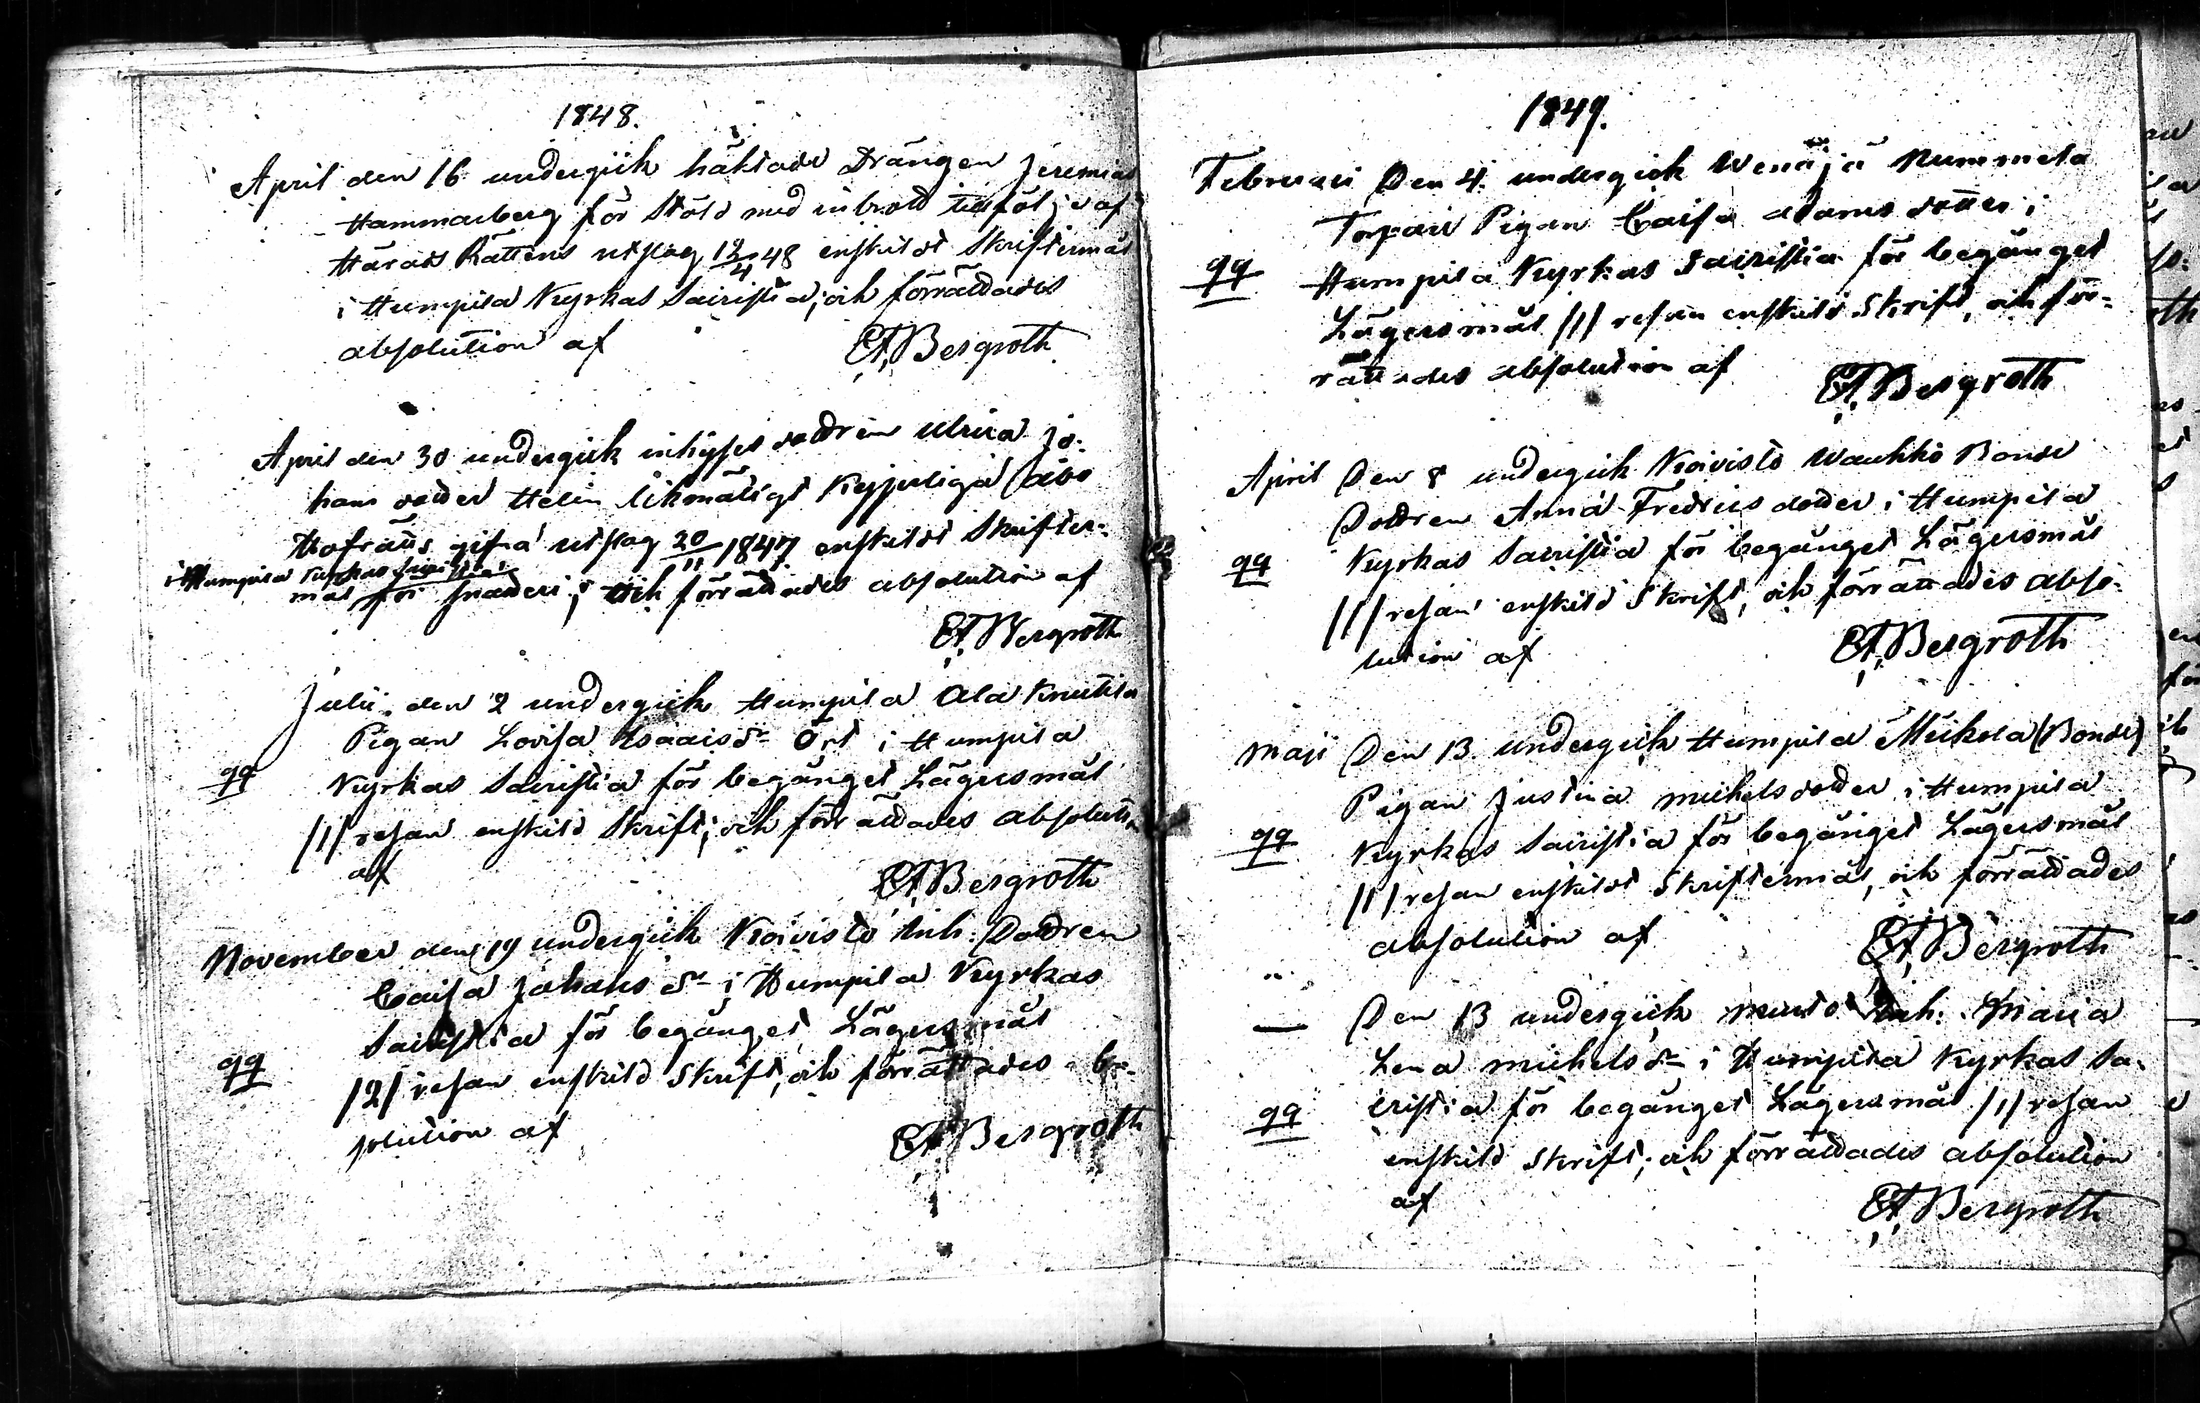 1848.
April den 16 undergick häktade Drängen Jeremias
Hammarberg för Stöld med inbrott till följe af
Härads Rättens utslag 12/4 48 enskildt Skriftermål
i Humpila Kyrkas Sacristia; och förrättades
absolution af
EABergroth
April den 30 undergick inhyses dottren Ulrica Jo-
hans dotter Helin likmätigt Kejserliga Åbo
Hofrätts gifna utslag 20/11 1847 enskildt Skrifter-
i Humpila Kyrkas Sacristia
mål för snatteri; och förrättades absolution af
EABergroth
Julii den 2 undergick Humpila Ala Knuutila
Pigan Lovisa Isaacsdr Ört i Humpila
qq Kyrkas Sacristia för begånget Lägersmål
/1/ resan enskild Skrift; och förrättades absolution
af
EABergroth
November den 19 undergick Koivisto Inh. Dottren
Caisa Johansdr i Humpila Kyrkas
Sacristia för begånget Lägersmål
qq /2/ resan enskild Skrift, och förrättades ab-
solution af
EABergroth
1849.
Februari Den 4. undergick Wenäjä Nummela
Torpare Pigan Caisa Adams dotter i
qq Humpila Kyrkas Sacristia för begånget
Lägersmål /1/ resan enskild Skrift, och för-
rättades absolution af
EABergroth
April Den 8 undergick Koivisto Waukko Bonde
Dottren Anna Fredrics dotter i Humpila
qq Kyrkas Sacristia för begånget Lägersmål
/1/ resan enskild Skrift, och förrättades abso-
lution af
EABergroth
Maji Den 13. undergick Humpila Meikola (Bonde)
Pigan Justina Michels dotter i Humpila
qq Kyrkas Sacristia för begånget Lägersmål
/1/ resan enskildt Skriftermål, och förrättades
absolution af
EABergroth
— Den 13 undergick Inh. Maria
Lena Michelsdr i Humpila Kyrkas Sa-
qq cristia för begånget Lägersmål /1/ resan
enskild Skrift; och förrättades absolution
af
EABergroth